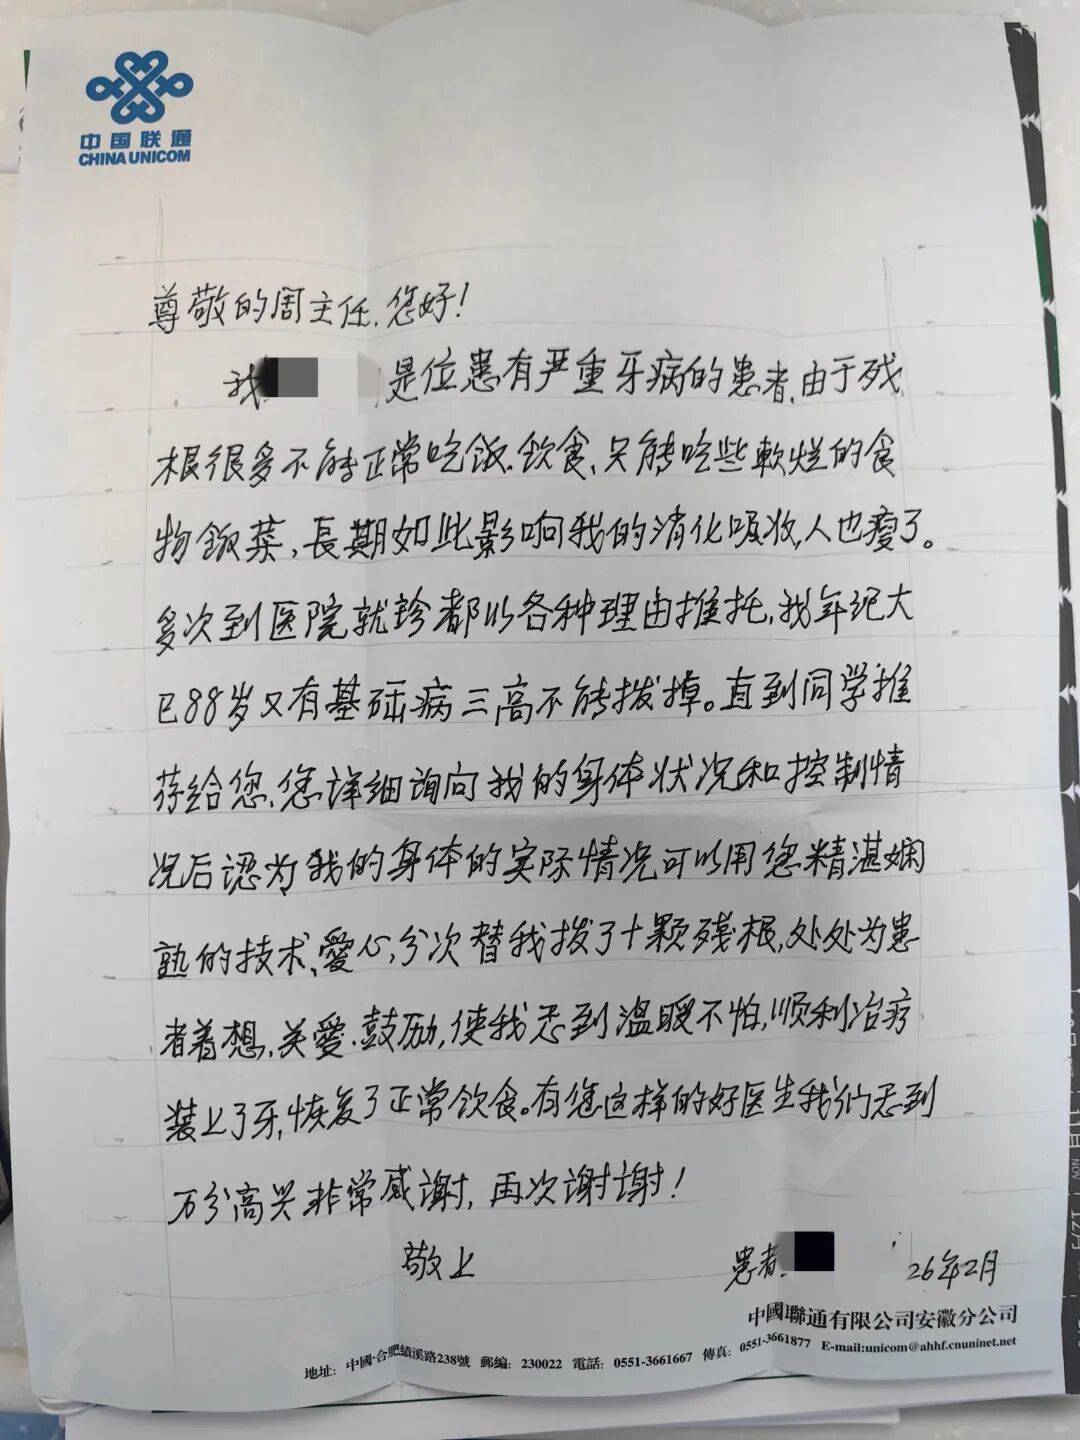 中国联通
CHINA UNICOM
尊敬的周主任,您好!
我 是位患有严重牙病的患者,由于残
根很多不能正常吃饭.饮食、只能吃些軟烂的食
物飯菜,長期如此影响我的消化吸收,人也瘦了。
多次到医院就珍都以各种理由推托,我年纪大
已88岁又有基础病三高不能拨掉。直到同学推
荐给您,您详细询问我的身体状况和控制情
况后認为我的身体的实际情况可以用您精湛娴
熟的技术、愛心,分次替我拨了十颗残根,处处为患
者着想,关愛.鼓励,使我忎到温暖不怕,顺利治疗
装上了牙,恢复了正常饮食。有您这样的好医生我们忎到
万分高兴非常感谢,再次谢谢!
敬上 患者 26年2月
中國聯通有限公司安徽分公司
地址:中國·合肥績溪路238號 郵編:230022 電話:0551-3661667 傳真:0551-3661877 E-mail:unicom@ahhf.cnuninet.net
11月
NOV
12月